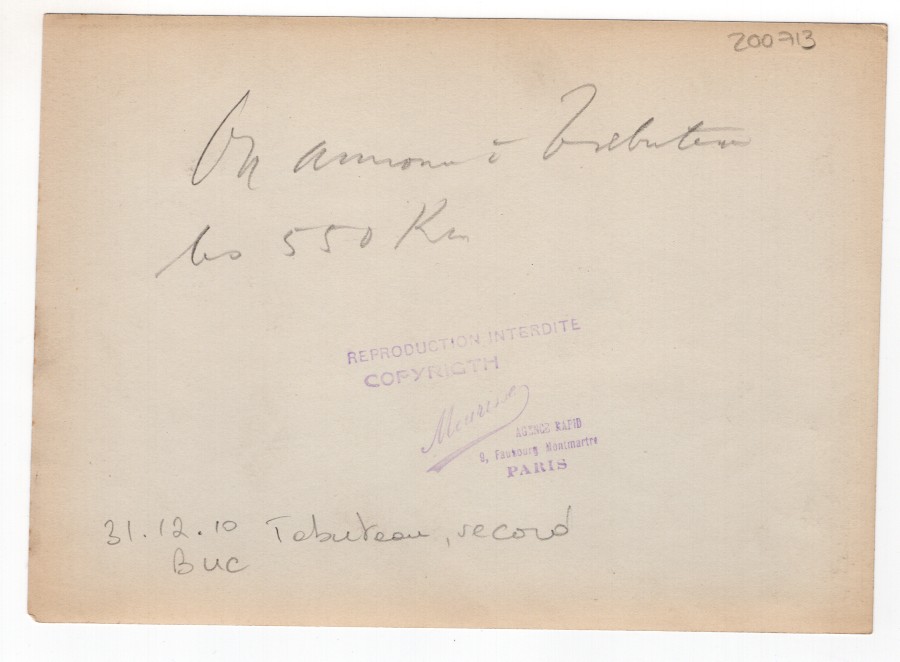 200713
On annonce à Tabuteau
les 550 Km
REPRODUCTION INTERDITE
COPYRIGTH
Meurisse
AGENCE RAPID
9, Faubourg Montmartre
PARIS
31.12.10 Tabuteau, record
Buc